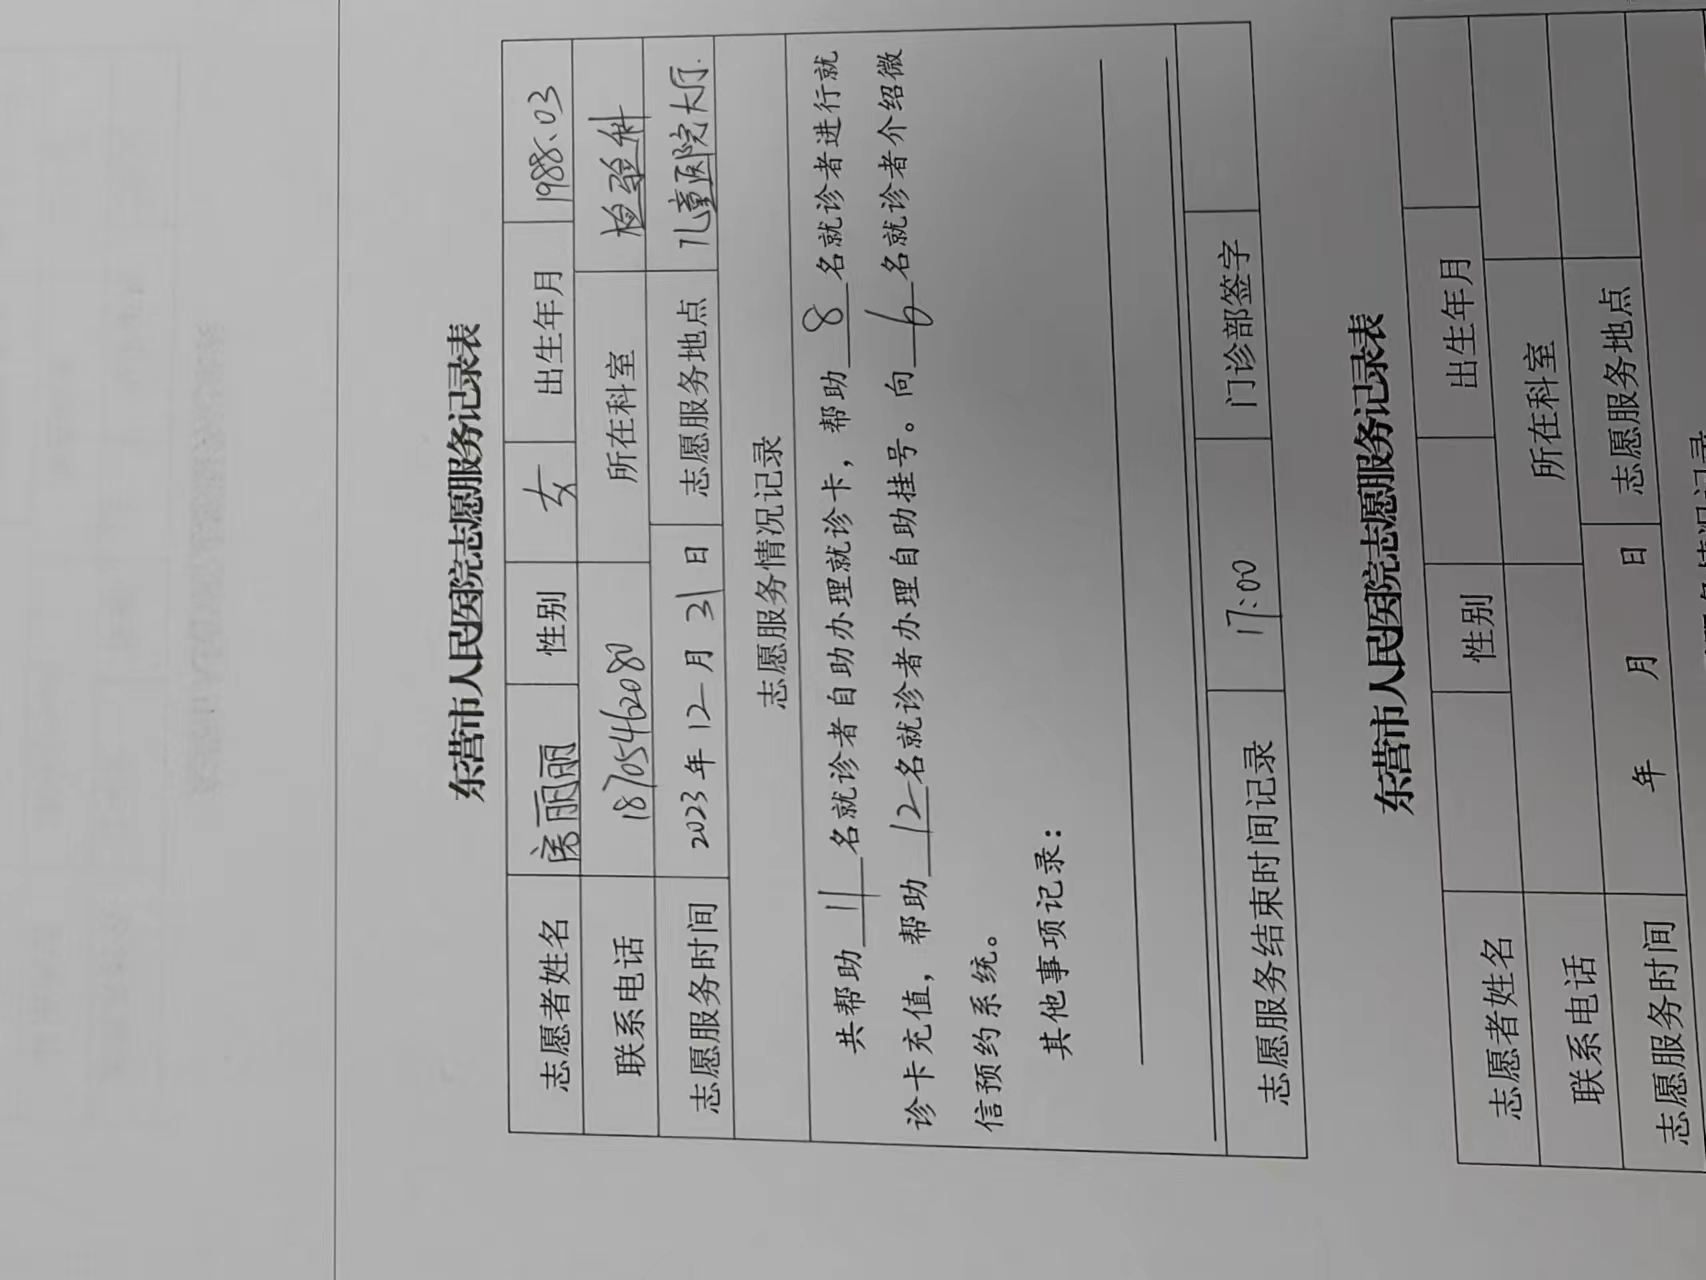 东营市人民医院志愿服务记录表
志愿者姓名 房丽丽 性别 女 出生年月 1988.03
联系电话 18705462080 所在科室 检验科
志愿服务时间 2023年12月31日 志愿服务地点 儿童医院大厅.
志愿服务情况记录
共帮助11名就诊者自助办理就诊卡，帮助8名就诊者进行就
诊卡充值，帮助12名就诊者办理自助挂号。向6名就诊者介绍微
信预约系统。
其他事项记录：
志愿服务结束时间记录 17:00 门诊部签字
东营市人民医院志愿服务记录表
志愿者姓名 性别 出生年月
联系电话 所在科室
志愿服务时间 年 月 日 志愿服务地点